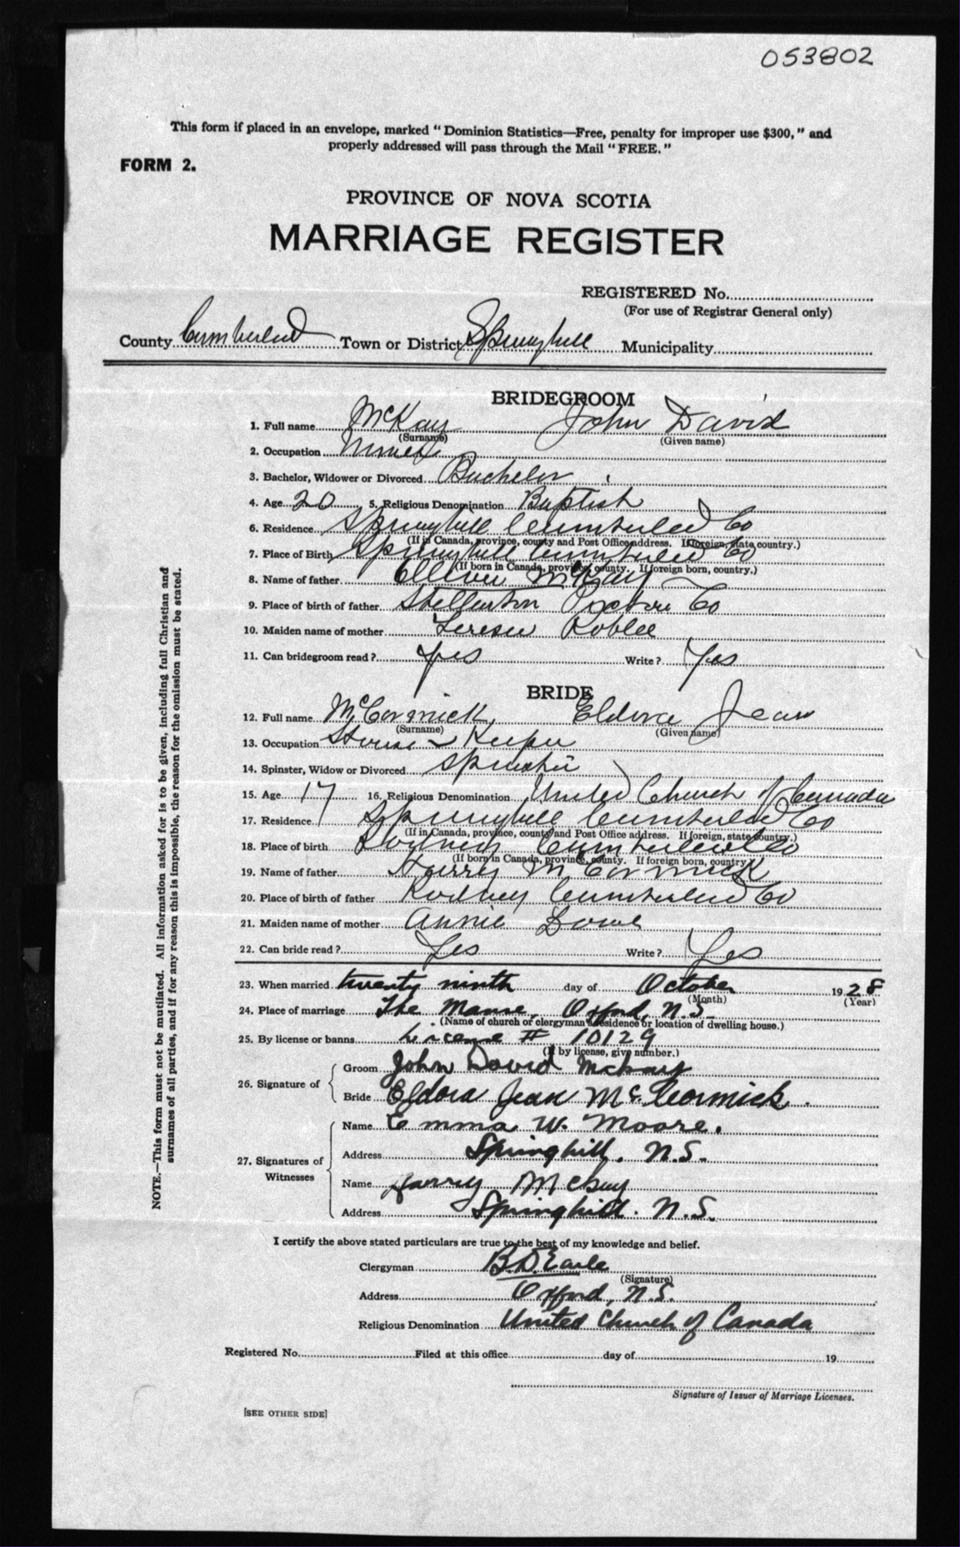 053802
This form if placed in an envelope, marked "Dominion Statistics—Free, penalty for improper use $300," and
properly addressed will pass through the Mail "FREE."
FORM 2.
PROVINCE OF NOVA SCOTIA
MARRIAGE REGISTER
REGISTERED No.
(For use of Registrar General only)
County Cumberland Town or District Springhill Municipality
BRIDEGROOM
1. Full name McKay John David
(Surname) (Given name)
2. Occupation Miner
3. Bachelor, Widower or Divorced Bachelor
4. Age 20 5. Religious Denomination Baptist
6. Residence Springhill Cumberland Co
(If in Canada, province, county and Post Office address. If foreign, state country.)
7. Place of Birth Springhill Cumberland Co
(If born in Canada, province, county. If foreign born, country.)
8. Name of father McKay
9. Place of birth of father Stellarton Pictou Co
10. Maiden name of mother Roblee
11. Can bridegroom read? Yes Write? Yes
BRIDE
12. Full name McCormick, Eldora Jean
(Surname) (Given name)
13. Occupation House Keeper
14. Spinster, Widow or Divorced Spinster
15. Age 17 16. Religious Denomination United Church of Canada
17. Residence Springhill Cumberland Co
(If in Canada, province, county and Post Office address. If foreign, state country.)
18. Place of birth Rodney Cumberland Co
(If born in Canada, province, county. If foreign born, country.)
19. Name of father Harry McCormick
20. Place of birth of father Rodney Cumberland Co
21. Maiden name of mother Annie
22. Can bride read? Yes Write? Yes
23. When married twenty ninth day of October 1928
(Month) (Year)
24. Place of marriage The Manse, Oxford, N.S.
(Name of church or clergyman's residence or location of dwelling house.)
25. By license or banns License # 10129
(If by license, give number.)
26. Signature of
Groom John David McKay
Bride Eldora Jean McCormick.
27. Signatures of Witnesses
Name Emma W. Moore.
Address Springhill, N.S.
Name Harry
Address Springhill. N.S.
I certify the above stated particulars are true to the best of my knowledge and belief.
Clergyman B.D. Earle
(Signature)
Address Oxford, N.S.
Religious Denomination United Church of Canada
Registered No. Filed at this office day of 19
Signature of Issuer of Marriage Licenses.
[SEE OTHER SIDE]
NOTE.—This form must not be mutilated. All information asked for is to be given, including full Christian and
surnames of all parties, and if for any reason this is impossible, the reason for the omission must be stated.